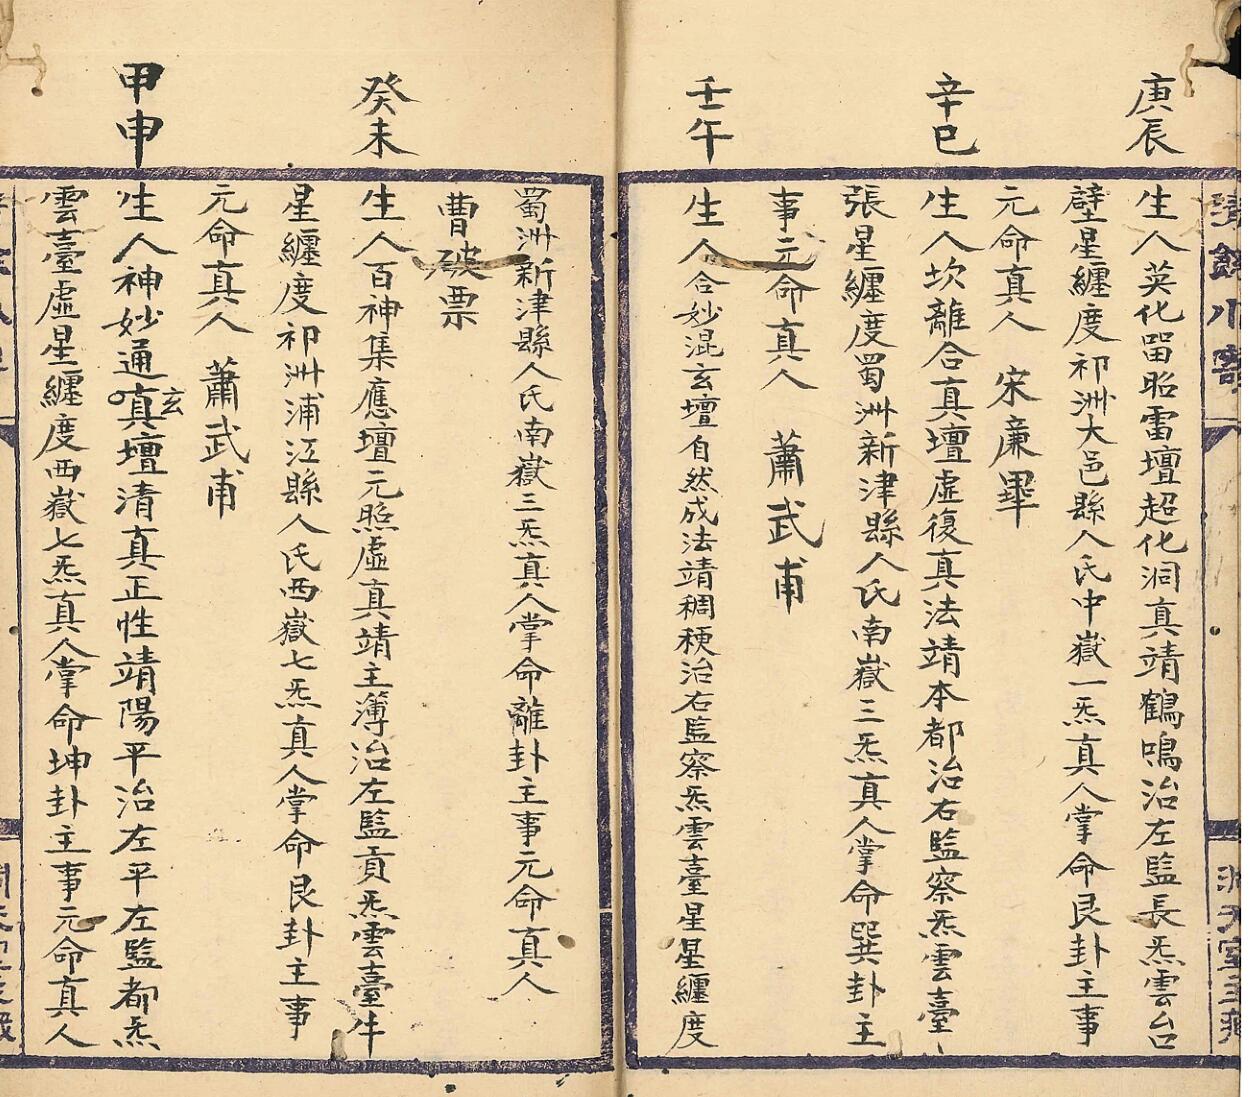 庚辰
生人英化畱昭雷壇超化洞真靖鶴鳴治左監長炁雲台
壁星纏度祁洲大邑縣人氏中嶽一炁真人掌命艮卦主事
元命真人 宋亷畢
辛巳
生人坎離合真壇虛復真法靖本都治右監察炁雲臺
張星纏度蜀洲新津縣人氏南嶽三炁真人掌命巽卦主
事元命真人 蕭武甫
壬午
生人合妙混玄壇自然成法靖稠稉治右監察炁雲臺星星纏度
蜀洲新津縣人氏南嶽三炁真人掌命離卦主事元命真人
曹破票
癸未
生人百神集應壇元炁虛真靖主簿治左監貢炁雲臺牛
星纏度祁洲浦江縣人氏西嶽七炁真人掌命艮卦主事
元命真人 蕭武甫
甲申
生人神妙通真玄壇清真正性靖陽平治左平左監都炁
雲臺虛星纏度西嶽七炁真人掌命坤卦主事元命真人